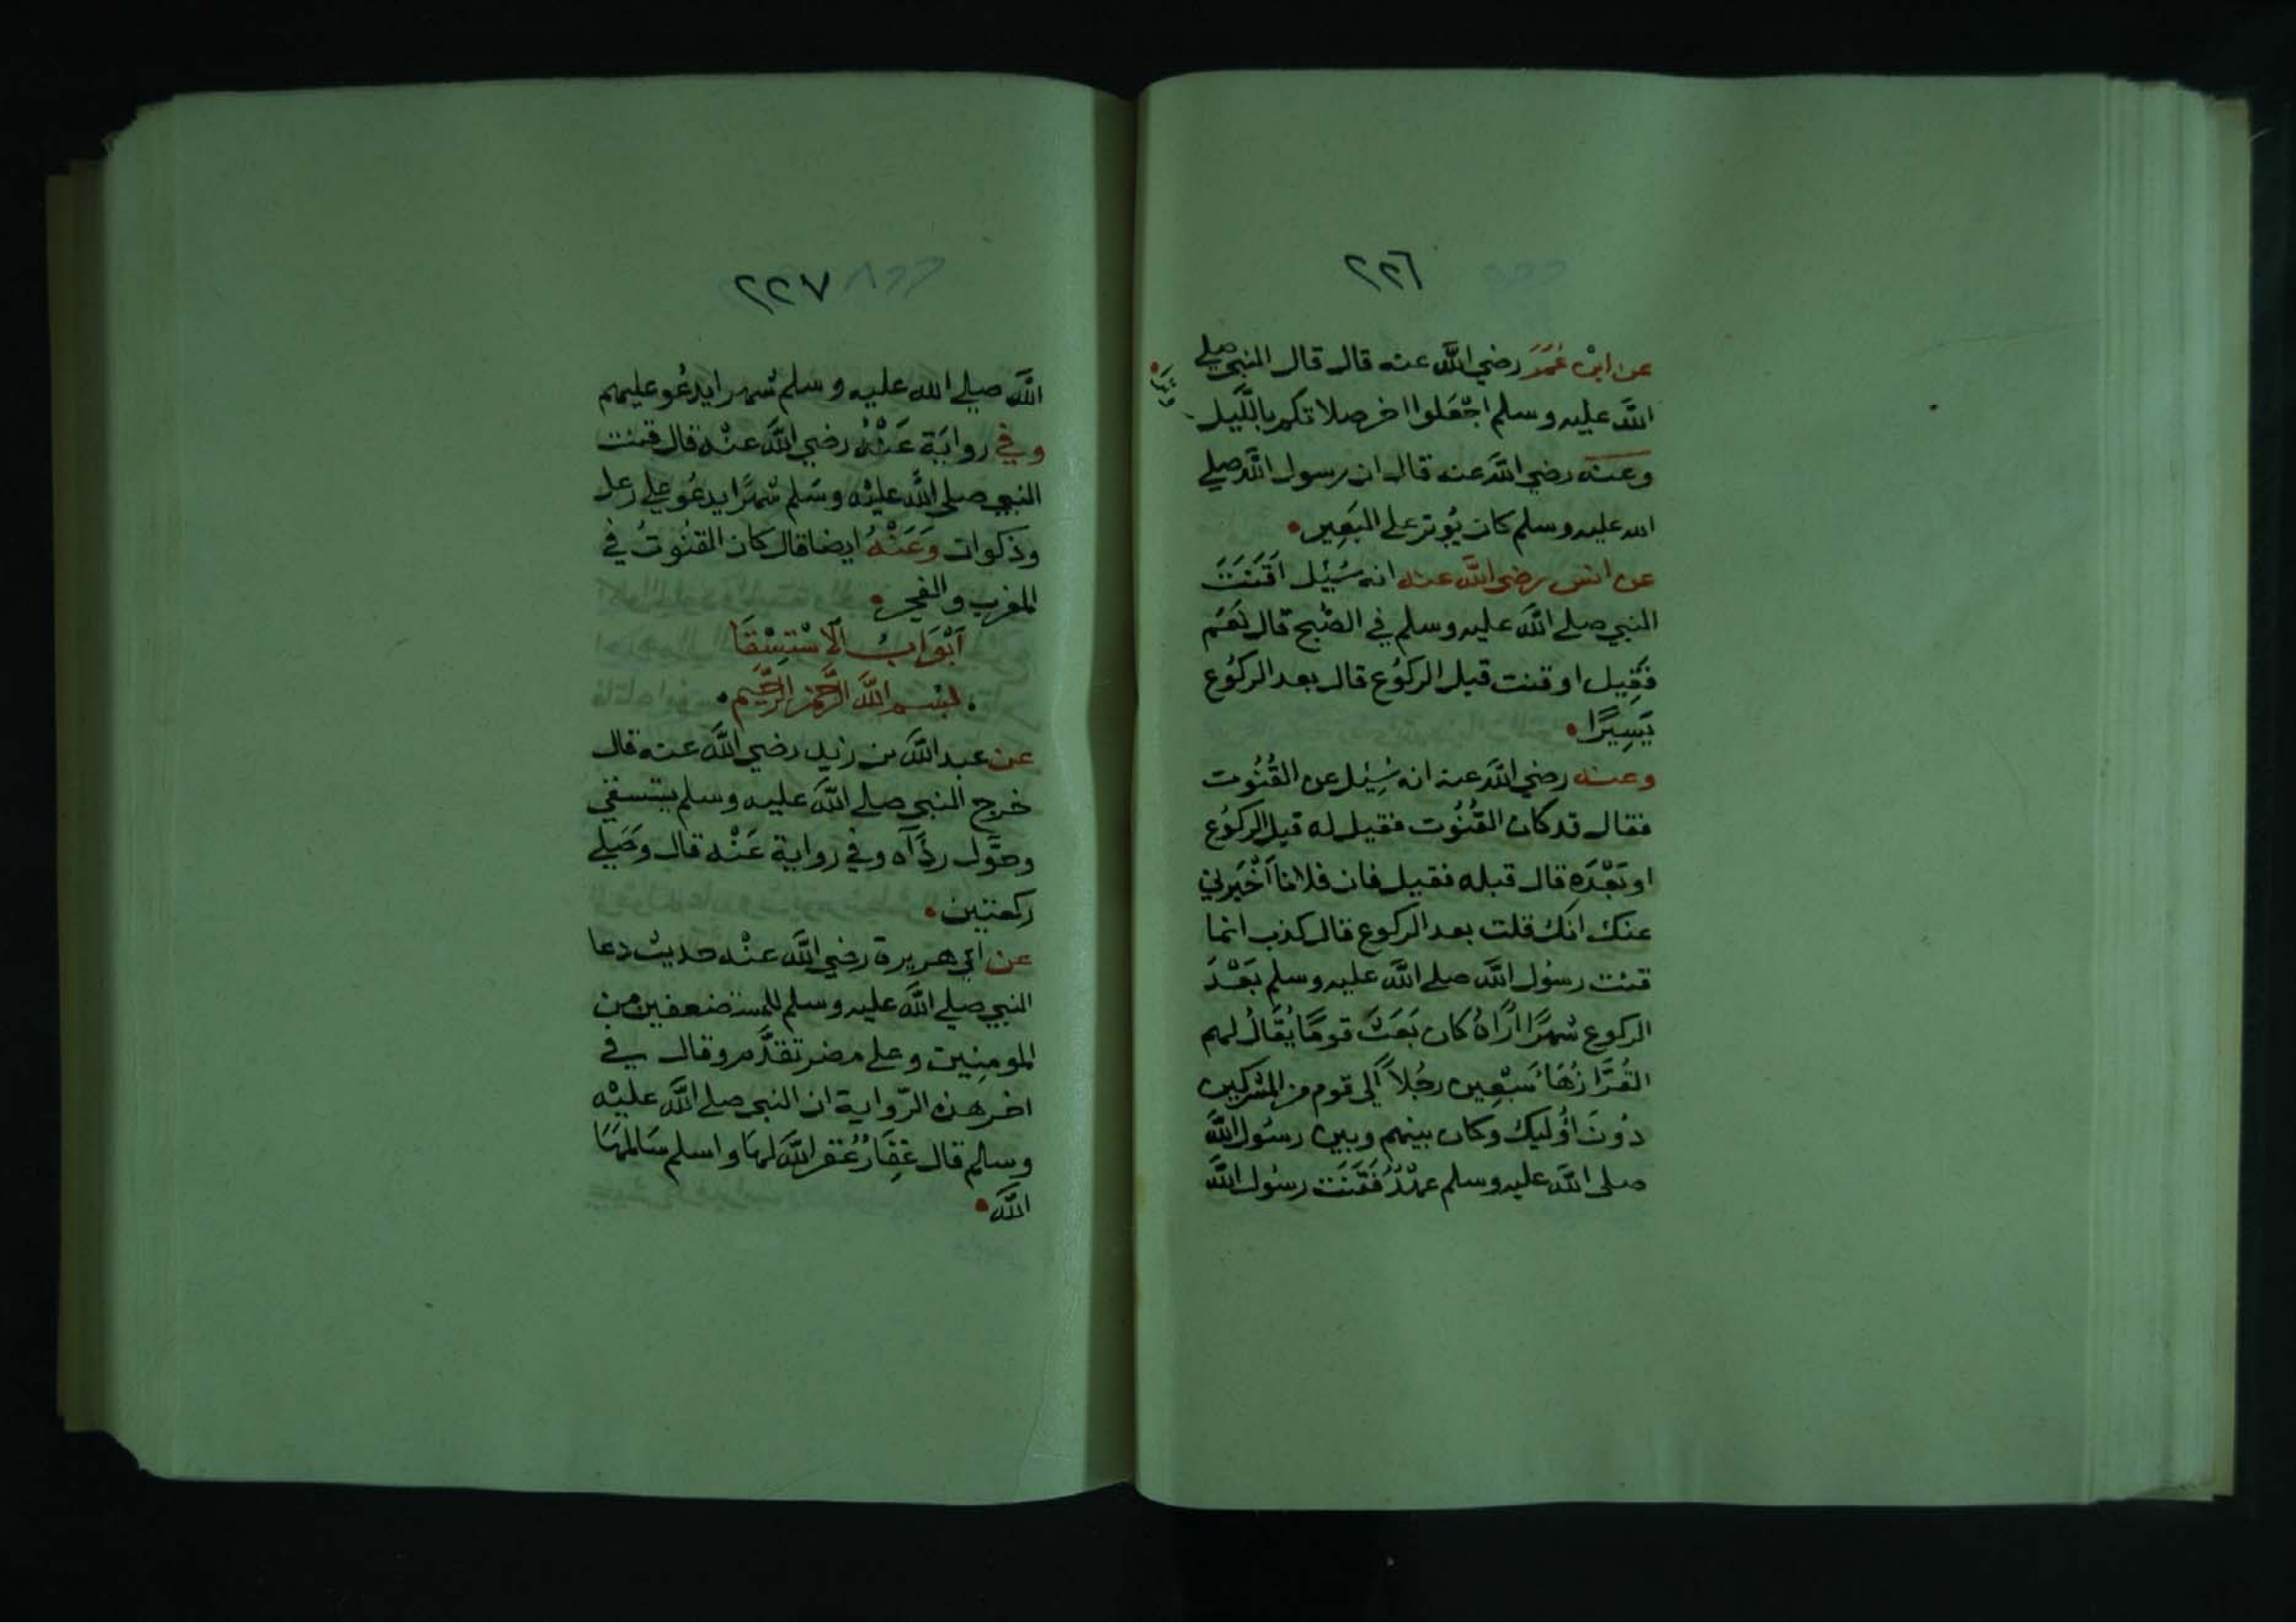 ٢٢٦
عن ابن عُمَرَ رضي الله عنه قال قال النبي صلى
الله عليه وسلم اجْعَلوا اخر صلاتكم بالليل
وترا
وعنه رضي الله عنه قال ان رسول الله صلى
الله عليه وسلم كان يُوتر على البَعِير
عن انس رضى الله عنه انه سُئِل اَقَنَتَ
النبي صلى الله عليه وسلم في الصُبح قال نَعَم
فَقِيل او قنت قبل الركوُع قال بعد الركوُع
يَسِيرًا
وعنه رضي الله عنه انه سُئِل عن القُنُوت
فقال قد كان القُنُوت فقيل له قبل الركوُع
او بَعْدَه قال قبله فقيل فان فلانا اَخْبَرني
عنك انك قلت بعد الركوع قال كذب انما
قنت رسُول الله صلى الله عليه وسلم بَعْدَ
الركوع شهرًا اُرَاهُ كان بَعَثَ قومًا يُقَالُ لهم
القُرَّا زُهَا سَبْعِين رجُلاً اِلى قوم من المشركين
دُونَ اوُليك وكان بينهم وبين رسُول الله
صلى الله عليه وسلم عهْدٌ فَقَنَت رسُول الله
٢٢٧
الله صلى الله عليه وسلم شهرا يدعُو عليهم
وفي روايَة عَنْهُ رضي الله عنْه قال قنت
النبي صلى الله عليْه وسَلم شهرًا يدعُو على رعل
وذكوان وَعَنْهُ ايضا قال كان القنُوتُ في
المغرب والفجر
اَبْوَابُ الاِسْتِسْقَا
بسم الله الرحمن الرحيم
عن عبد الله بن زيد رضي الله عنه قال
خرج النبي صلى الله عليه وسلم يستسقي
وحَوَّل ردَآه وفي رواية عَنْه قال وصَلى
ركعتين
عن ابي هريرة رضي الله عنْه حديث دعا
النبي صلى الله عليه وسلم للمستضعفين من
المومِنِين وعلى مضر تقدَّم وقال في
اخر هذه الرّواية ان النبي صلى الله عليْه
وسلم قال غِفَارُ غفر الله لهَا واسلم سَالمهَا
الله